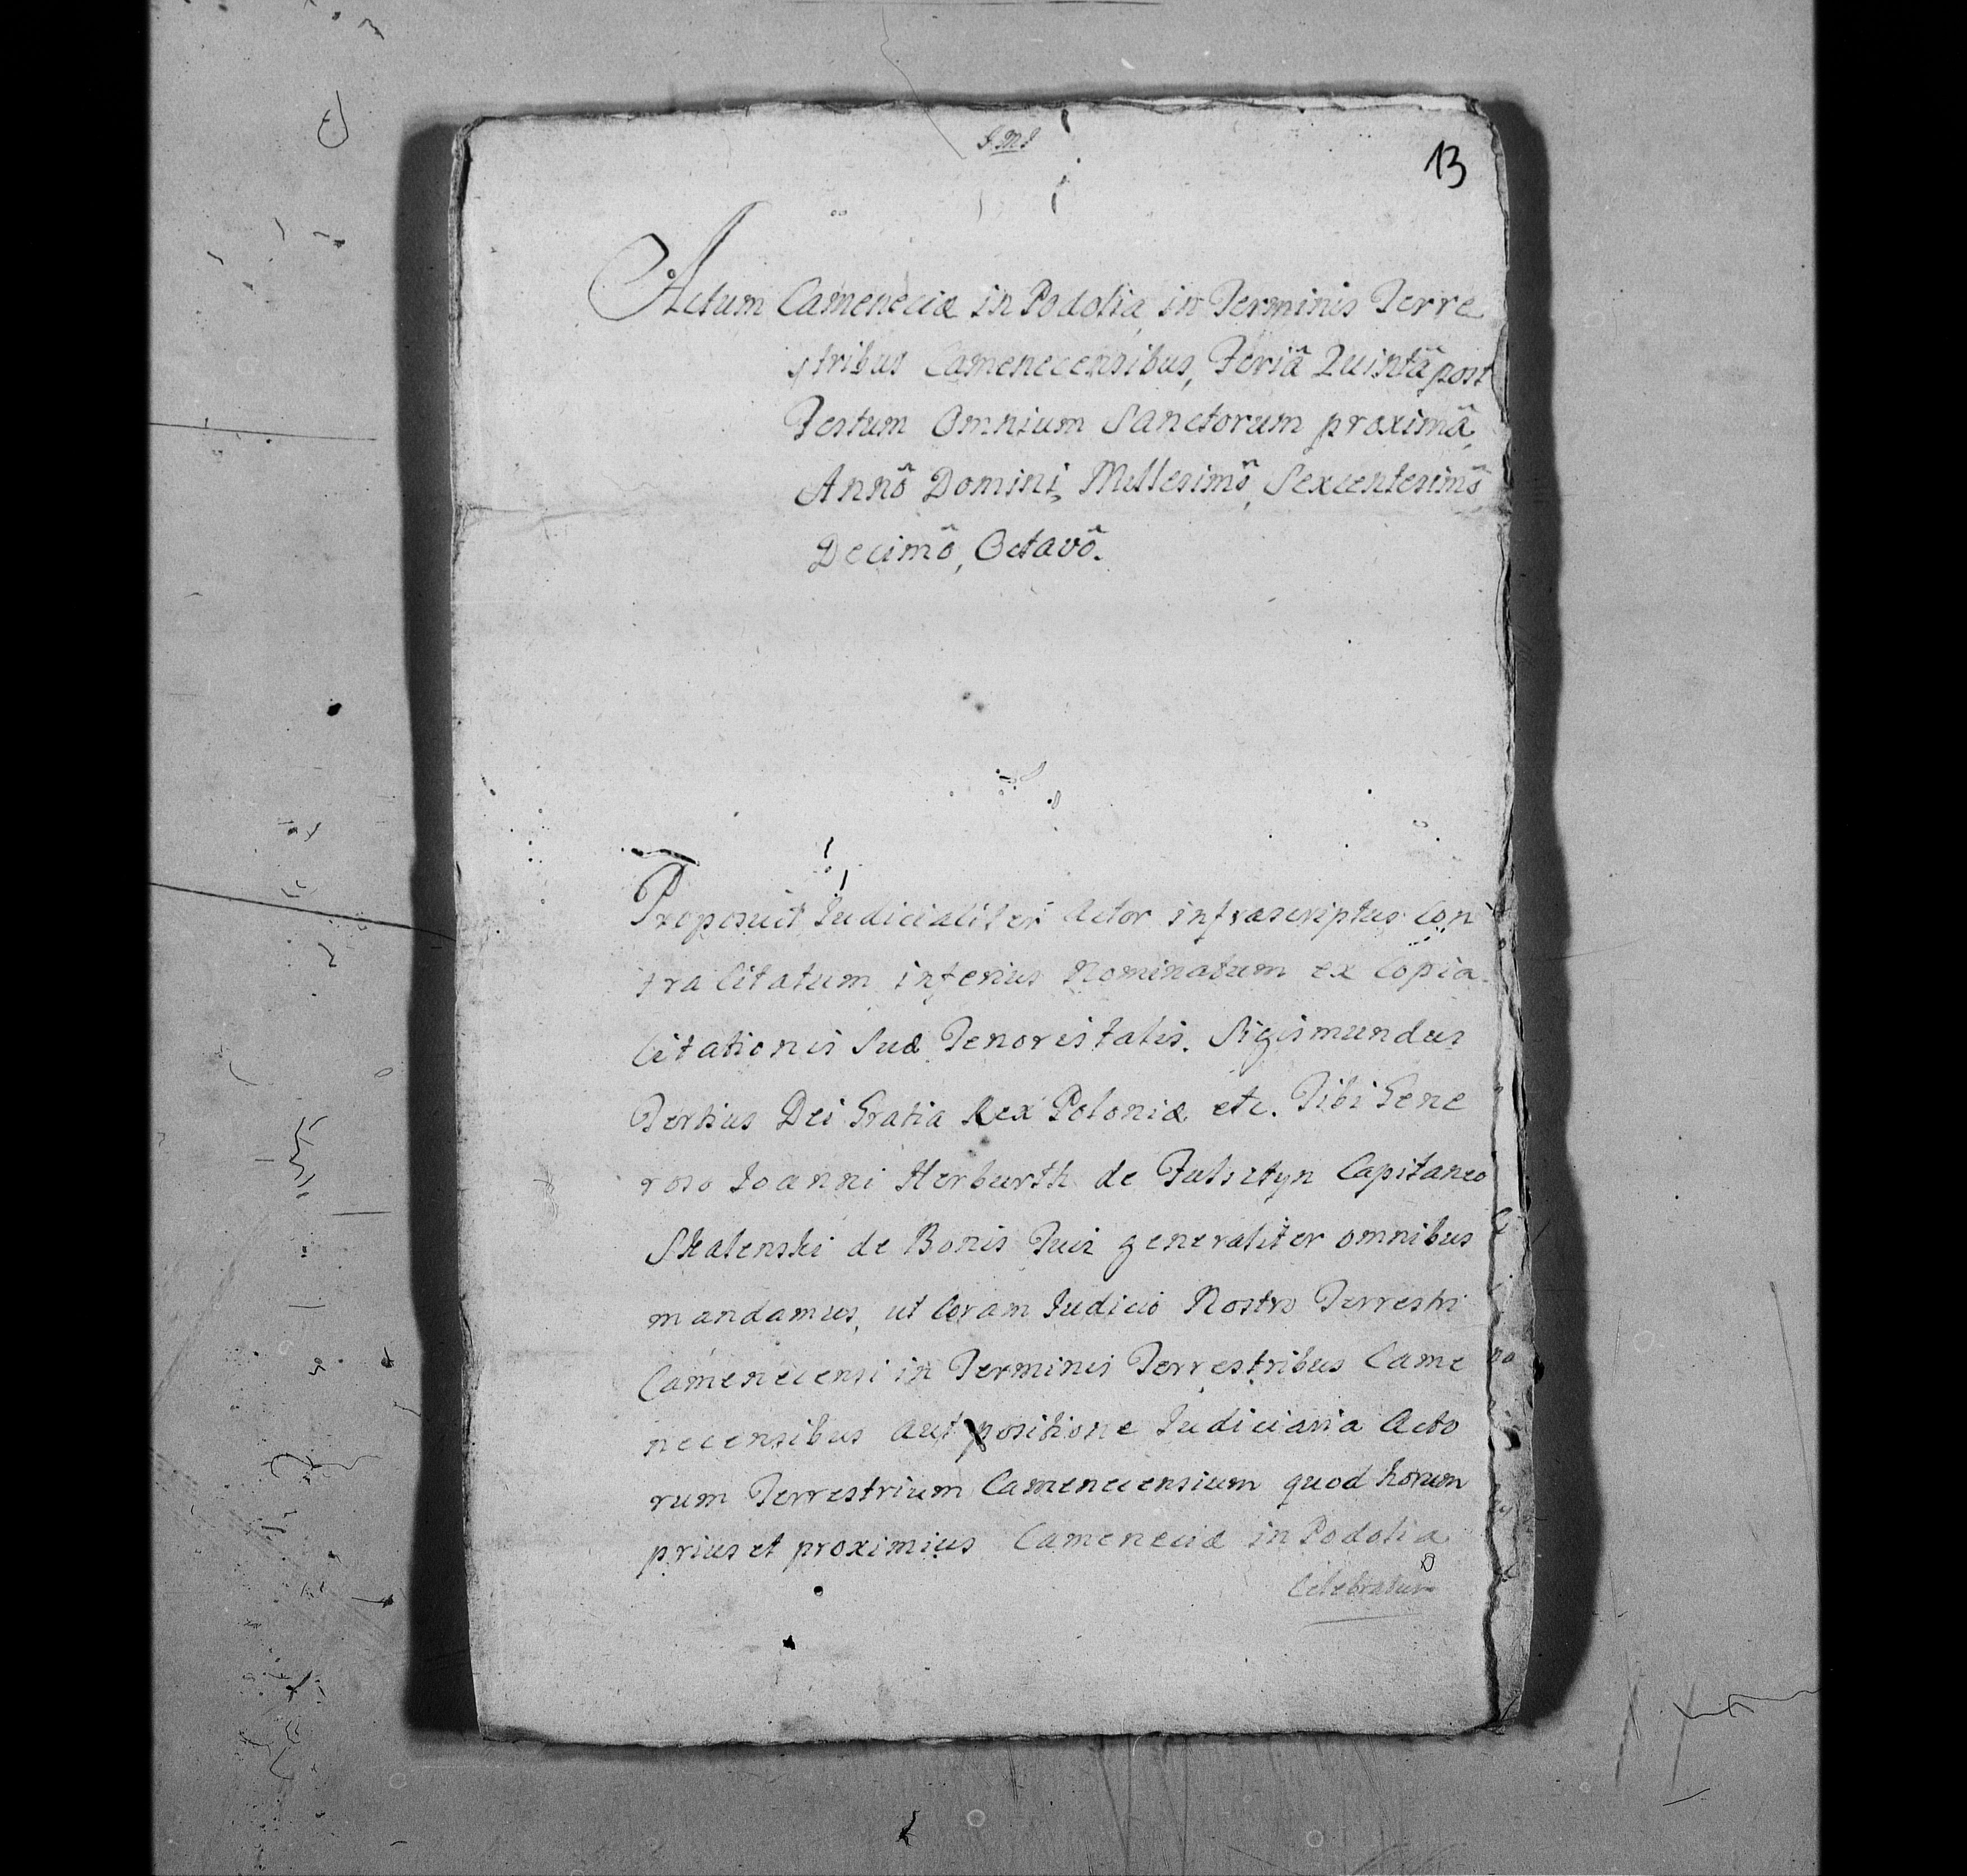 13
Actum Cameneciæ in Podolia in Terminis Terre
stribus Camenecensibus, Feriâ Quintâ post
Festum Omnium Sanctorum proximâ,
Annô Domini, Millesimô, Sexcentesimô
Decimô, Octavô.
Proposuit Iudicialiter Actor infrascriptus Con
tra Citatum inferius Nominatum ex Copia
Citationis Suæ Tenoris talis. Sigismundus
Tertius Dei Gratia Rex Poloniæ etc. Tibi Gene
roso Ioanni Herburth de Fulsztyn Capitaneo
Skalenski de Bonis Tuis generaliter omnibus
mandamus, ut Coram Iudicio Nostro Terrestri
Camenecensi in Terminis Terrestribus Came
necensibus aut positione Iudiciaria Acto
rum Terrestrium Camenecensium quod horum
prius et proximius Cameneciæ in Podolia
Celebratum